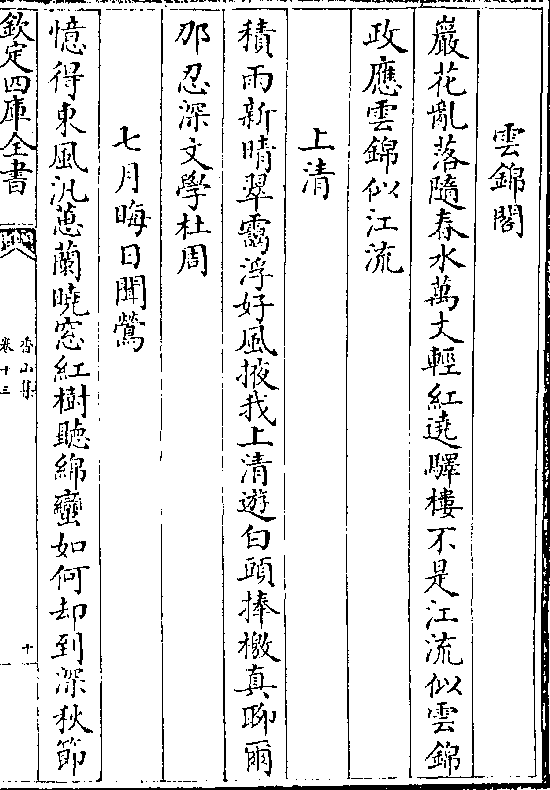 雲錦閣
巖花亂落隨春水萬丈輕紅遶驛樓不是江流似雲錦
政應雲錦似江流
上清
積雨新晴翠靄浮好風掖我上清遊白頭捧檄真聊爾
那忍深文學杜周
七月晦日聞鶯
憶得東風汎蕙蘭曉窓紅樹聽綿蠻如何却到深秋節
欽定四庫全書
香山集
卷十三
十